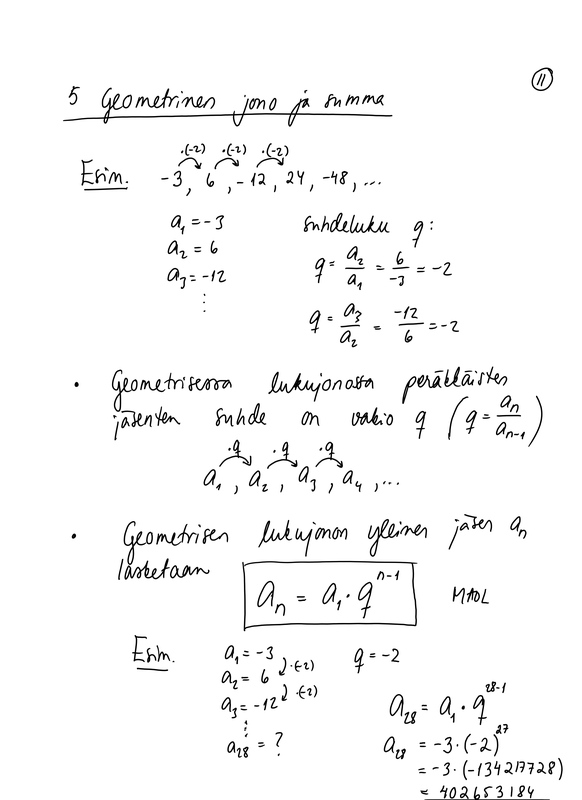 11
5 Geometrinen jono ja summa
·(-2) ·(-2) ·(-2)
Esim. -3, 6, -12, 24, -48, ...
a₁ = -3 suhdeluku q:
a₂ = 6 q = a₂/a₁ = 6/-3 = -2
a₃ = -12
⋮ q = a₃/a₂ = -12/6 = -2
• Geometrisessa lukujonossa peräkkäisten
jäsenten suhde on vakio q (q = aₙ/aₙ₋₁)
·q ·q ·q
a₁, a₂, a₃, a₄, ...
• Geometrisen lukujonon yleinen jäsen aₙ
lasketaan
aₙ = a₁ · qⁿ⁻¹ MAOL
Esim. a₁ = -3 q = -2
·(-2)
a₂ = 6
·(-2)
a₃ = -12 a₂₈ = a₁ · q²⁸⁻¹
⋮
a₂₈ = ? a₂₈ = -3·(-2)²⁷
= -3·(-134217728)
= 402653184